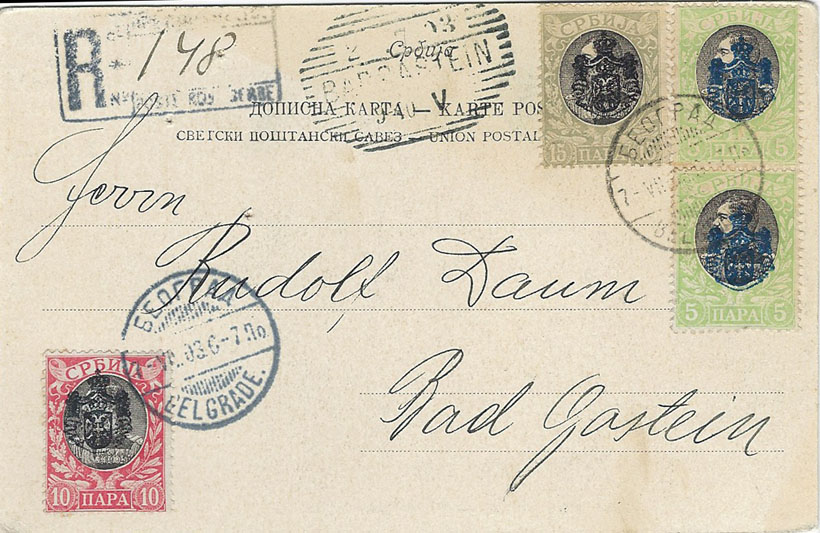 R 148
Србија
ДОПИСНА КАРТА — KARTE POS
СВЕТСКИ ПОШТАНСКИ САВЕЗ – UNION POSTAL
СРБИЈА
15 ПАРА
СРБИЈА
5
СРБИЈА
5 ПАРА 5
БЕОГРАД
Herrn
Rudolf Daum
Bad Gastein
БЕОГРАД
03 6-7 По
BELGRADE.
СРБИЈА
10 ПАРА 10